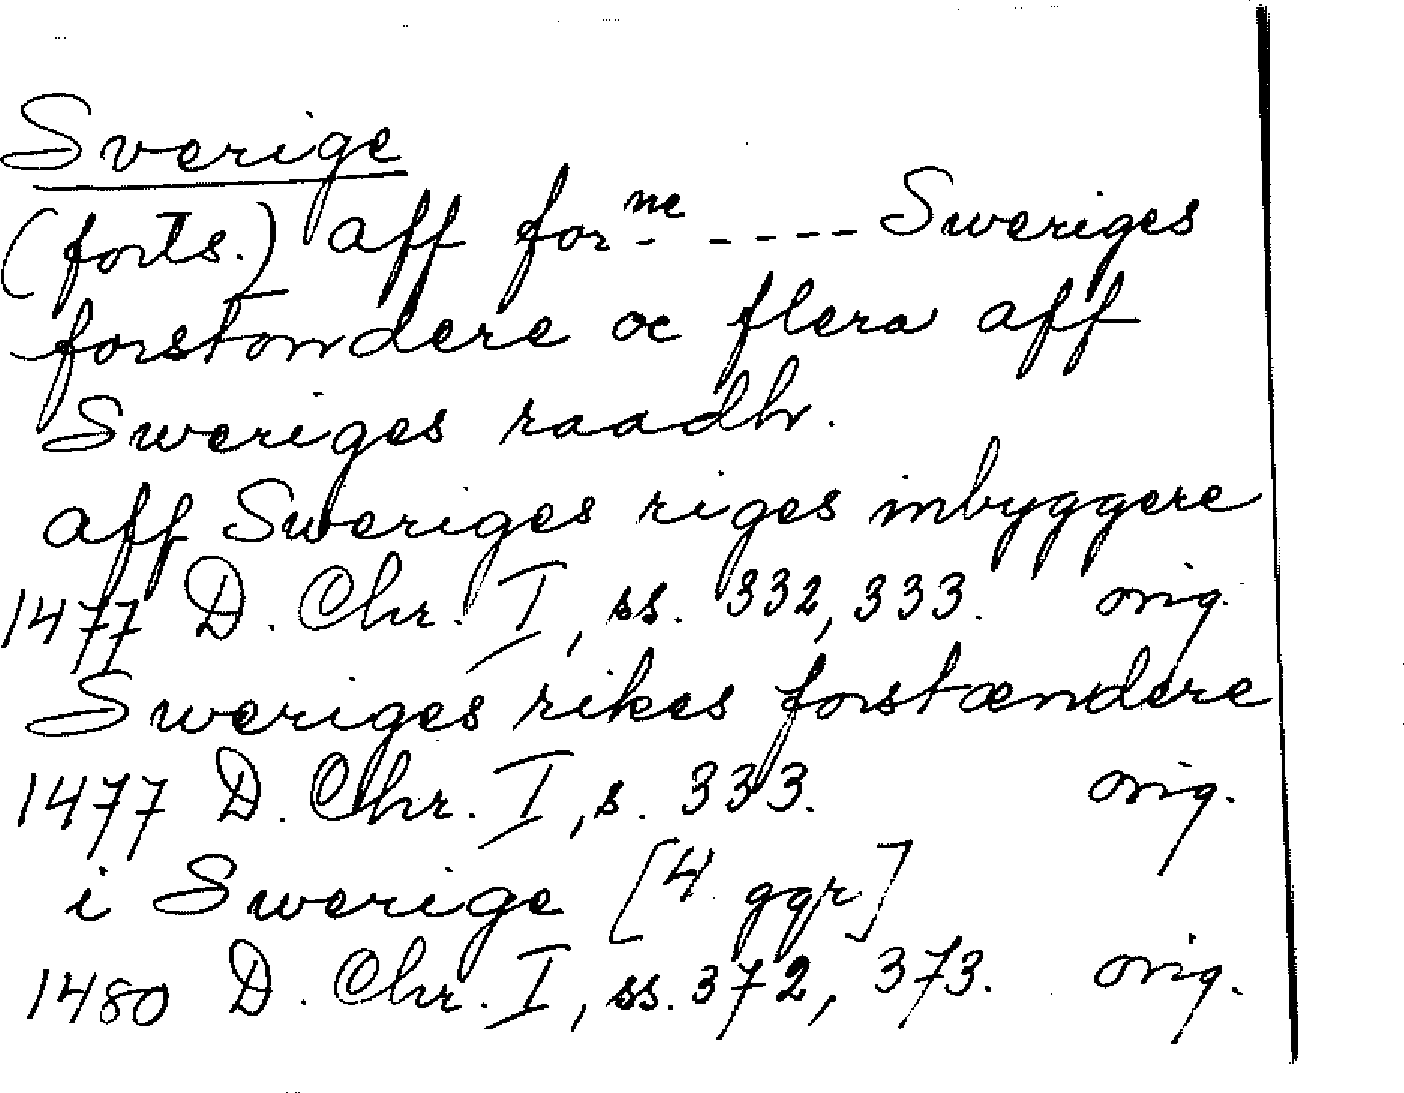 Sverige
(forts.) aff forne ----- Sweriges
forstondere oc flera aff
Sweriges raadh.
aff Sweriges riges inbyggere
1477 D. Chr. I, ss. 332, 333. orig.
Sweriges rikes forstændere
1477 D. Chr. I, s. 333. orig.
i Swerige [4 ggr]
1480 D. Chr. I, ss. 372, 373. orig.